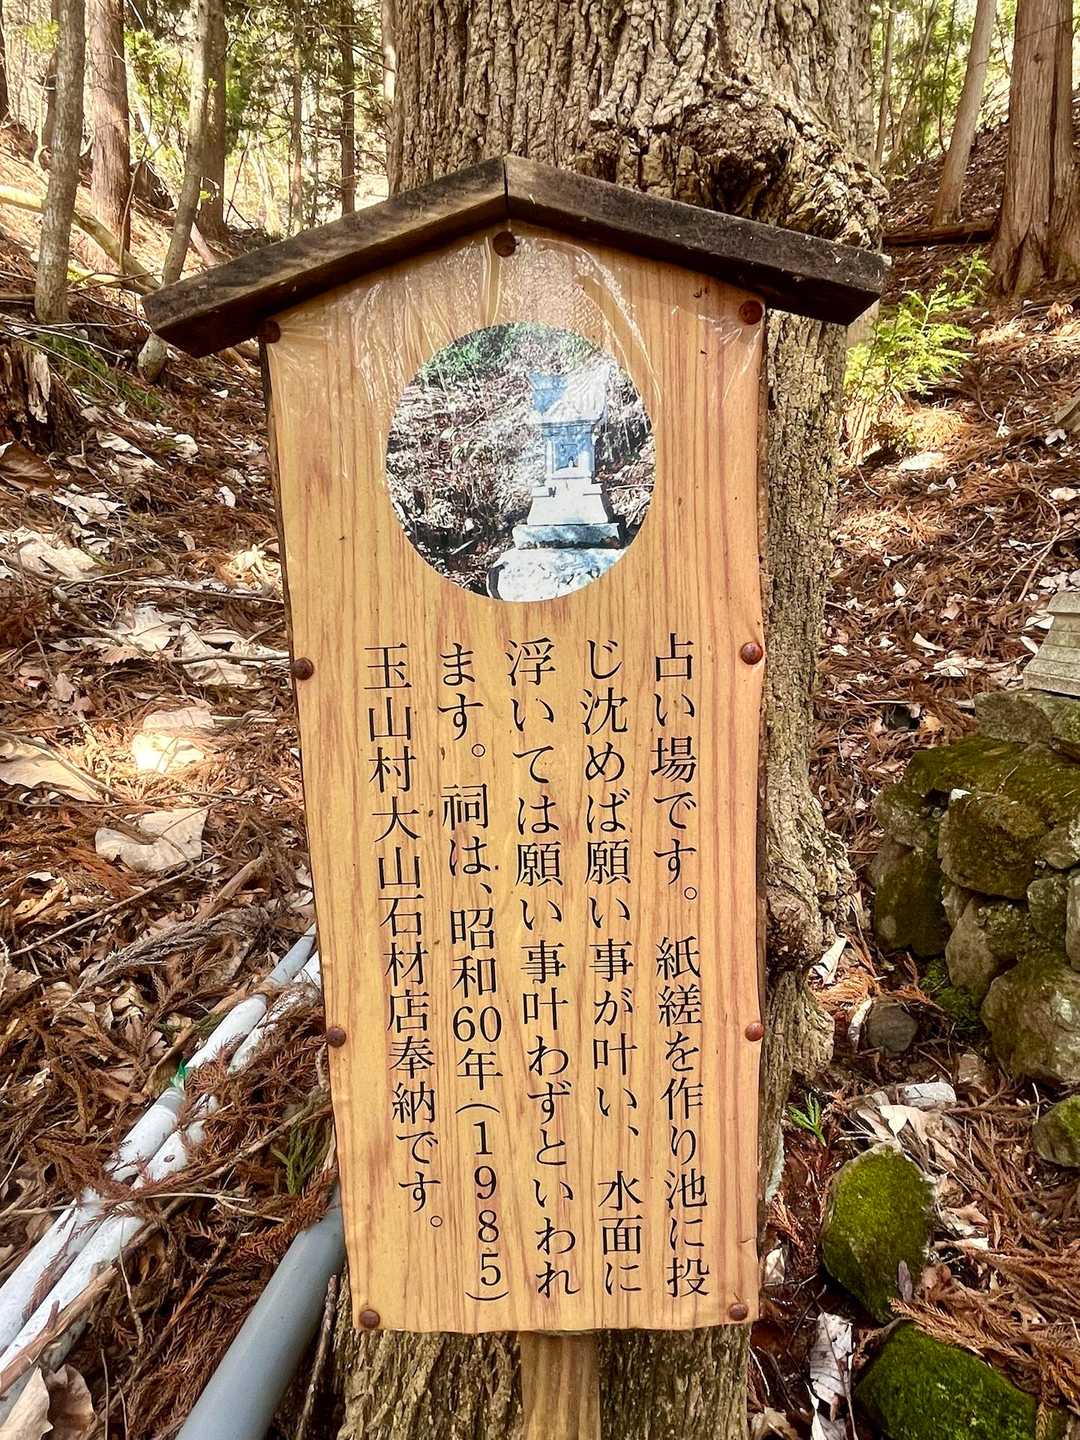 占い場です。紙縒を作り池に投
じ沈めば願い事が叶い、水面に
浮いては願い事叶わずといわれ
ます。祠は、昭和60年(1985)
玉山村大山石材店奉納です。